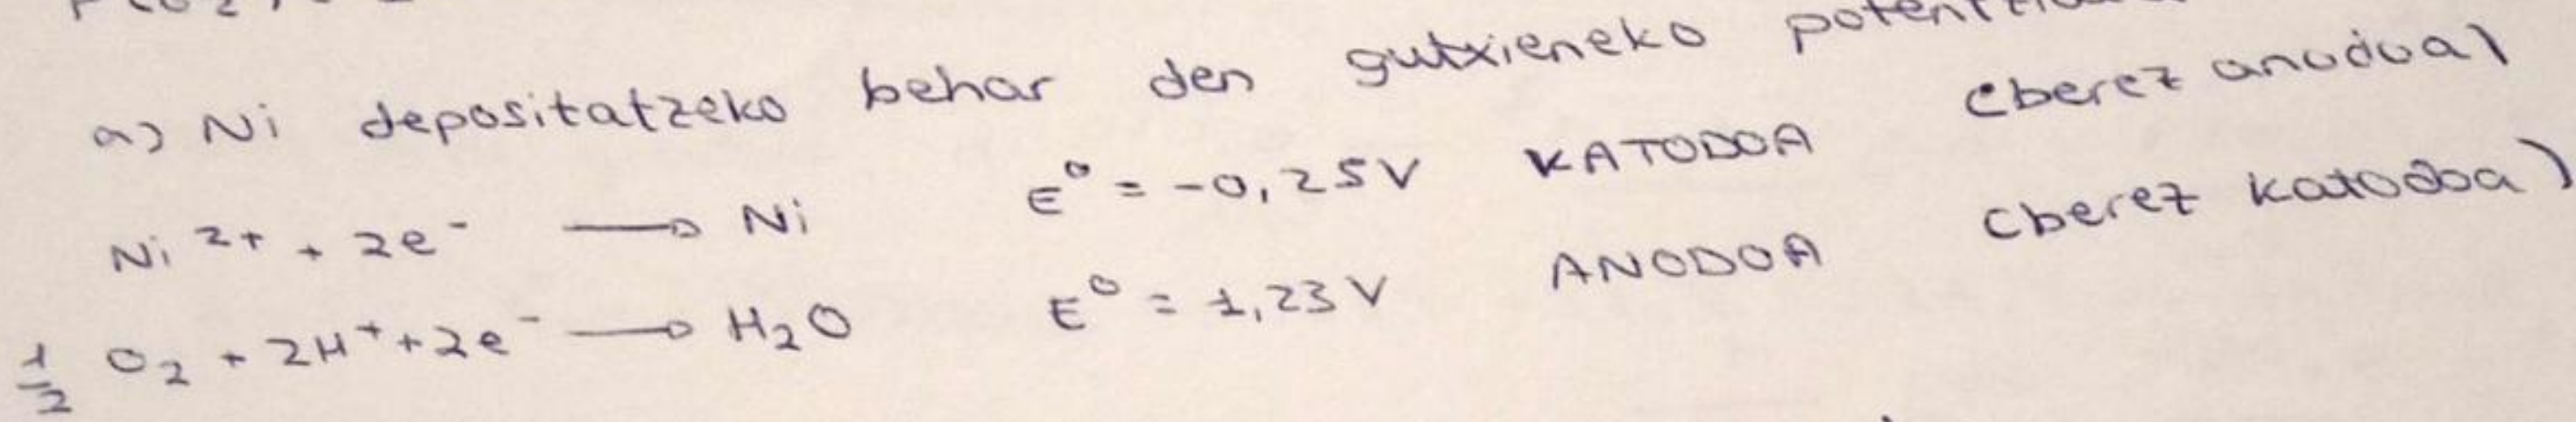 a) Ni depositatzeko behar den gutxieneko
Ni²⁺ + 2e⁻ → Ni E⁰ = -0,25V KATODOA (berez anodoa)
1/2 O₂ + 2H⁺ + 2e⁻ → H₂O E⁰ = 1,23V ANODOA (berez katodoa)